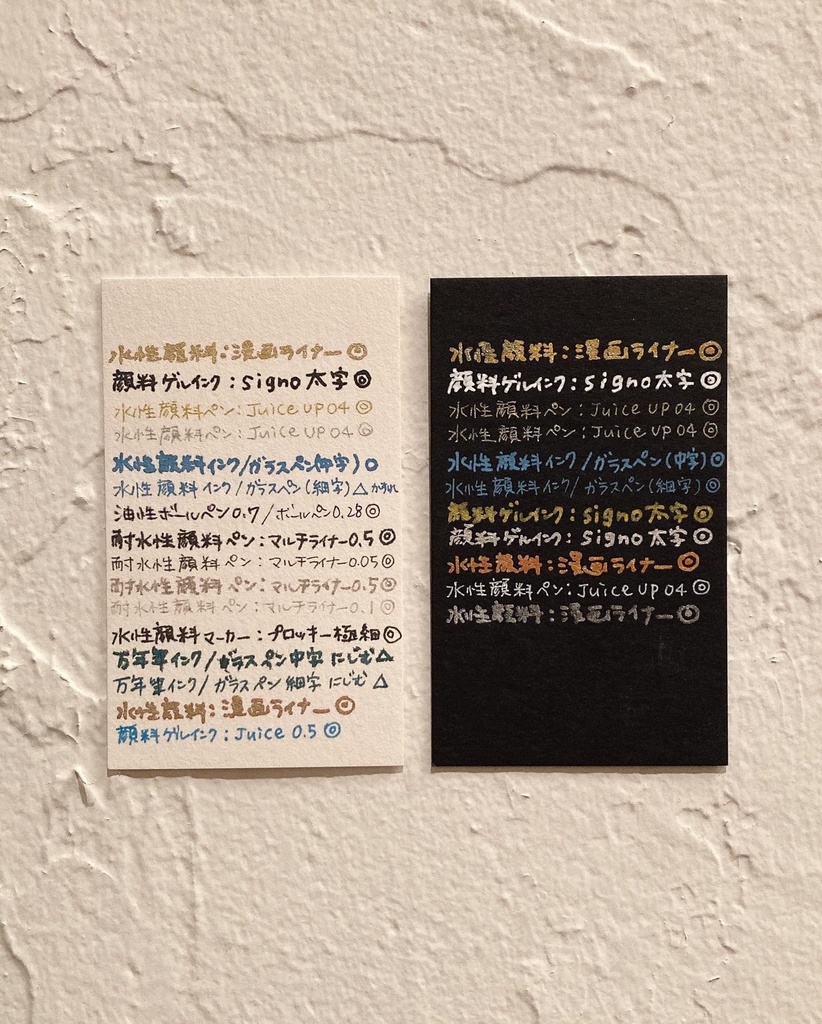 水性顔料:漫画ライナー◎
顔料ゲルインク:signo太字◎
水性顔料ペン:Juice UP 04◎
水性顔料ペン:Juice UP 04◎
水性顔料インク/ガラスペン(中字)○
水性顔料インク/ガラスペン(細字)△かすれ
油性ボールペン0.7/ボールペン0.28◎
耐水性顔料ペン:マルチライナー0.5◎
耐水性顔料ペン:マルチライナー0.05◎
耐水性顔料ペン:マルチライナー0.5◎
耐水性顔料ペン:マルチライナー0.1◎
水性顔料マーカー:プロッキー極細◎
万年筆インク/ガラスペン中字にじむ△
万年筆インク/ガラスペン細字にじむ△
水性顔料:漫画ライナー◎
顔料ゲルインク:Juice 0.5◎
水性顔料:漫画ライナー◎
顔料ゲルインク:signo太字◎
水性顔料ペン:Juice UP 04◎
水性顔料ペン:Juice UP 04◎
水性顔料インク/ガラスペン(中字)◎
水性顔料インク/ガラスペン(細字)◎
顔料ゲルインク:signo太字◎
顔料ゲルインク:signo太字◎
水性顔料:漫画ライナー◎
水性顔料ペン:Juice UP 04◎
水性顔料:漫画ライナー◎